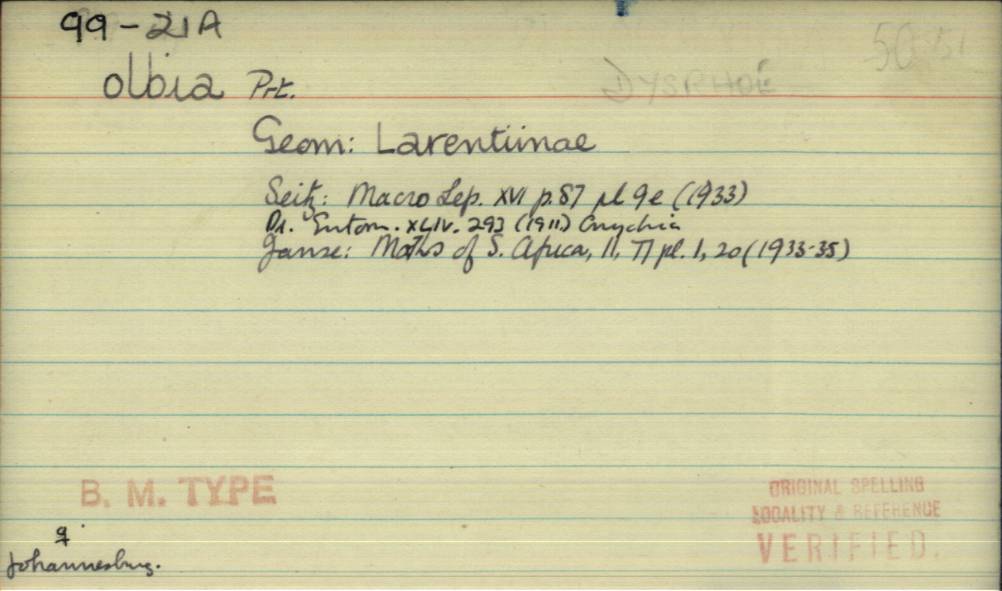 99-21A
50 51
olbia Prt. DYSPHOE
Geom: Larentiinae
Seitz: Macro Lep. XVI p.87 pl 9e (1933)
D1. Entom. XLIV. 293 (1911)
Janse: Moths of S. Africa, II, 77 pl. 1, 20 (1933-35)
B. M. TYPE
ORIGINAL SPELLING
LOCALITY & REFERENCE
VERIFIED.
♀
Johannesburg.